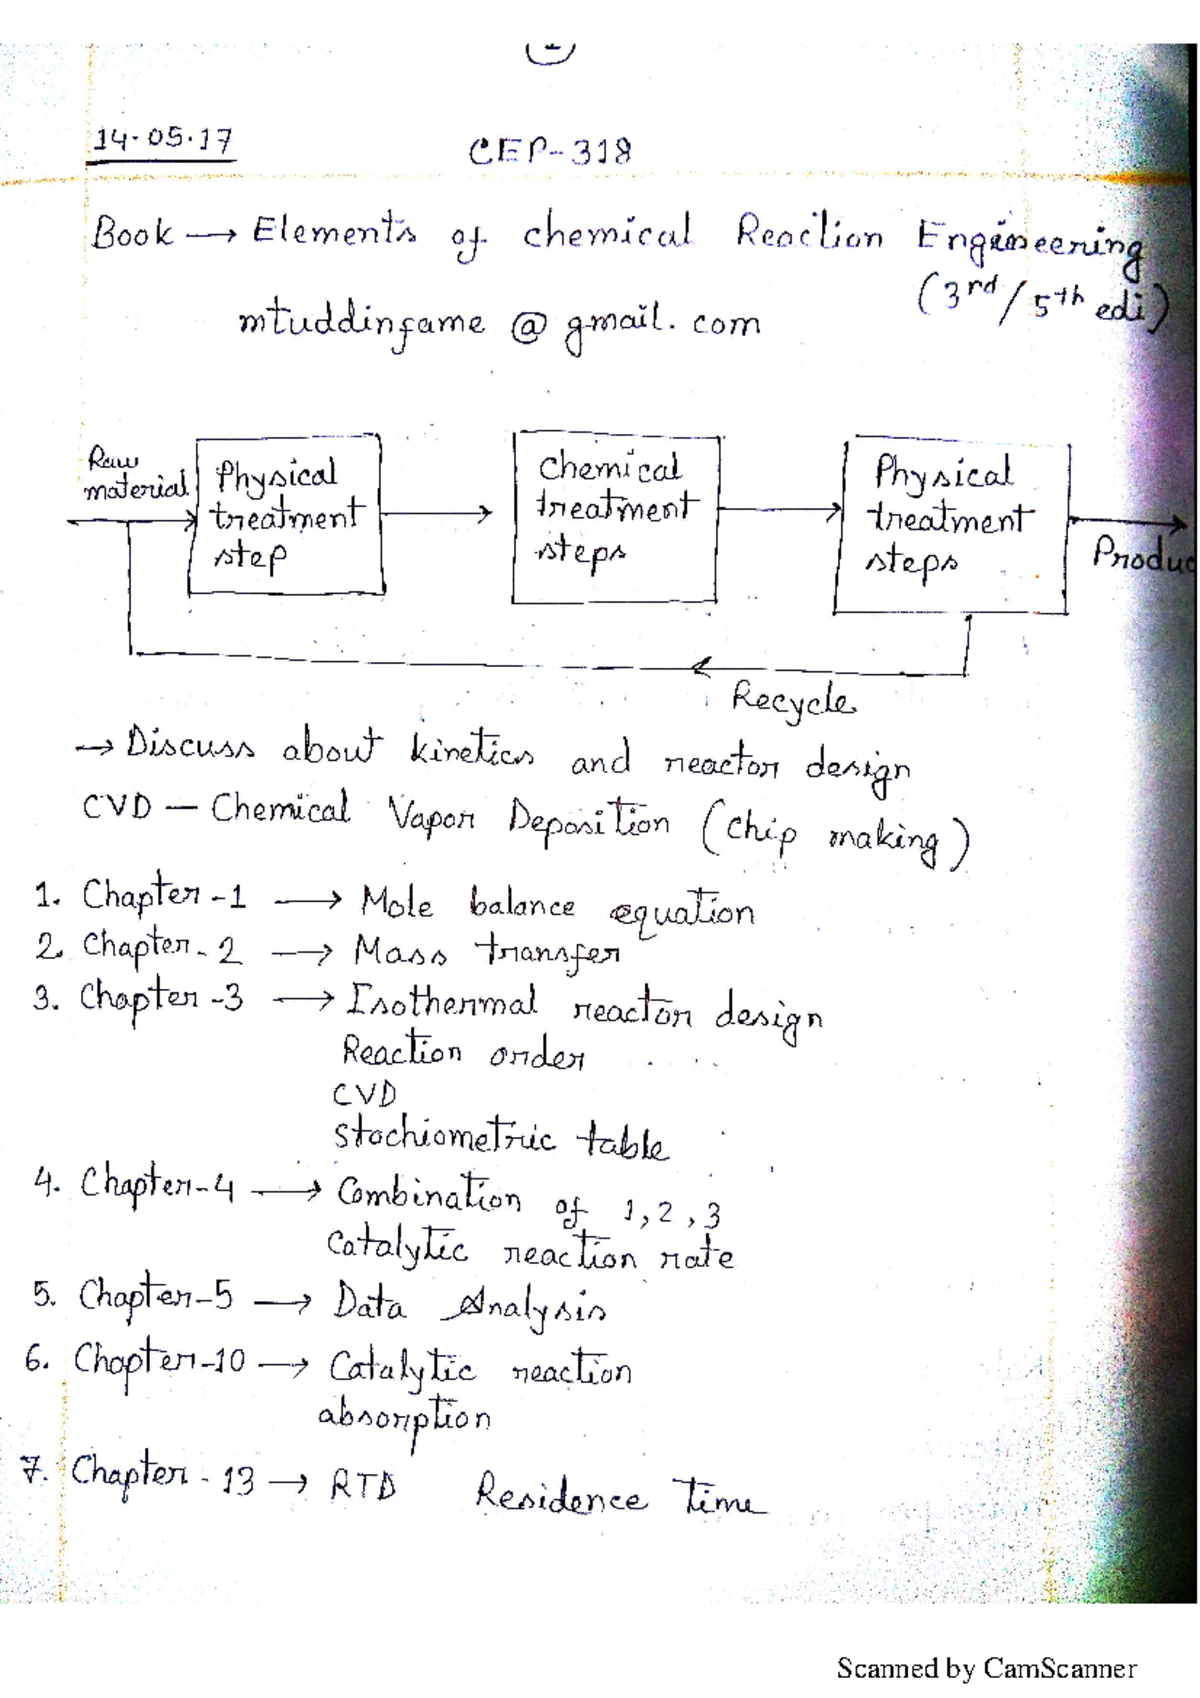 1
14.05.17
CEP-318
Book → Elements of chemical Reaction Engineering
(3rd/5th edi)
mtuddinfame@gmail.com
Raw material
Physical treatment step
Chemical treatment steps
Physical treatment steps
Produc
Recycle
→ Discuss about kinetics and reactor design
CVD — Chemical Vapor Deposition (chip making)
1. Chapter-1 → Mole balance equation
2. Chapter-2 → Mass transfer
3. Chapter-3 → Isothermal reactor design
Reaction order
CVD
stochiometric table
4. Chapter-4 → Combination of 1,2,3
Catalytic reaction rate
5. Chapter-5 → Data Analysis
6. Chapter-10 → Catalytic reaction
absorption
7. Chapter-13 → RTD Residence Time
Scanned by CamScanner